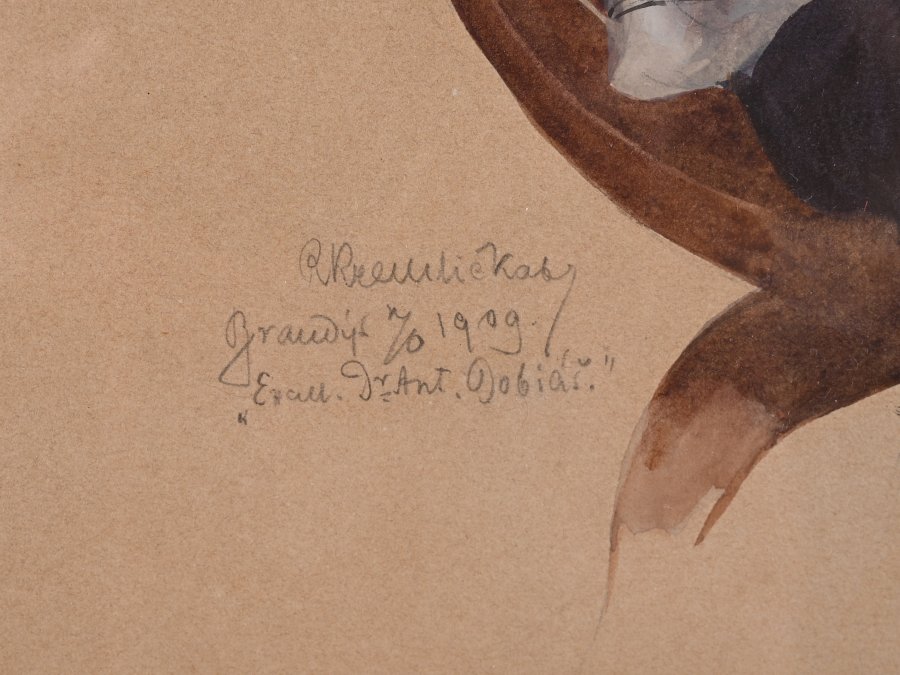 RKremlička
Brandýs n/O 1909.
"Excell. Dr. Ant. Dobiáš."